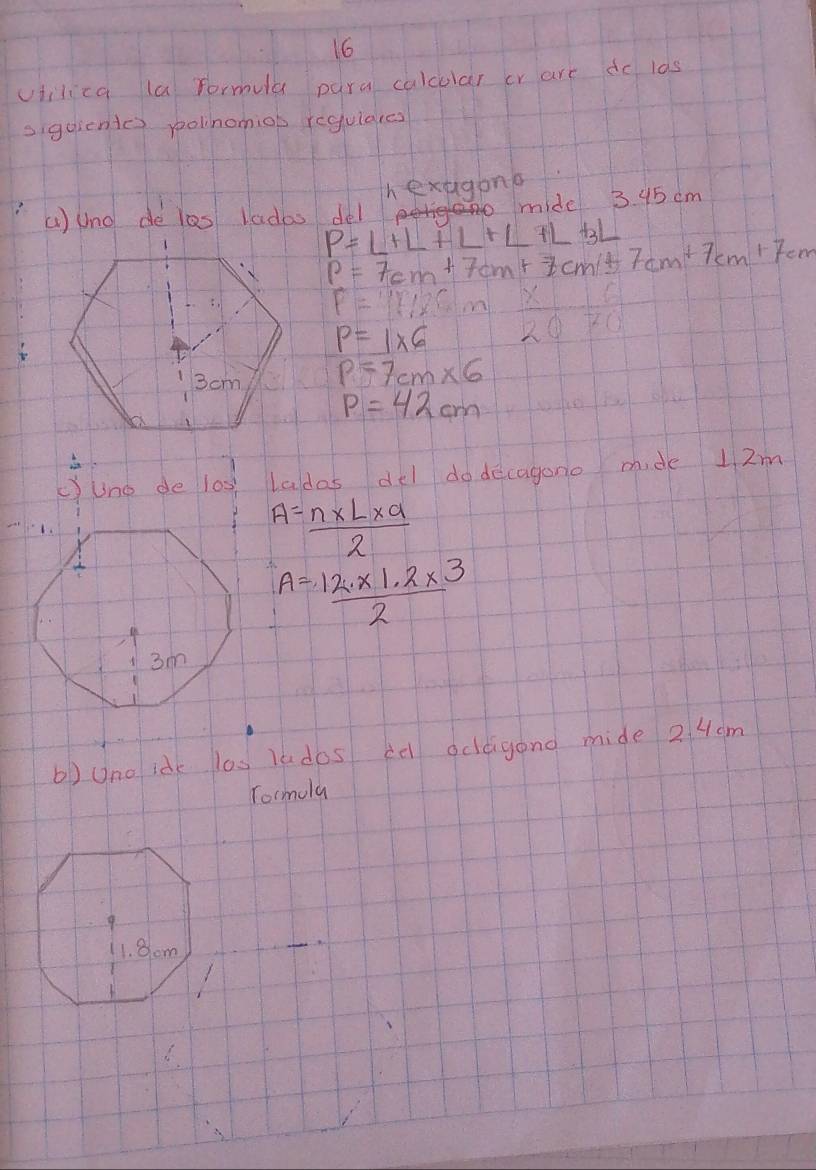 16
Utiliza la formula para calcular er are de las
siguientes polinomios regulares
a) Uno de los lados del hexagono mide 3.45 cm
P=L+L+L+L+L+L
P=7cm+7cm+7cm+7cm+7cm+7cm
P=1x6
P=7cmx6
P=42cm
3cm
c) Uno de los ladas del dodécagono mide 1,2m
A=nxLxa
2
A=12x1.2x3
2
3m
b) Uno de los lados del octágono mide 2.4cm
Formula
1.8cm